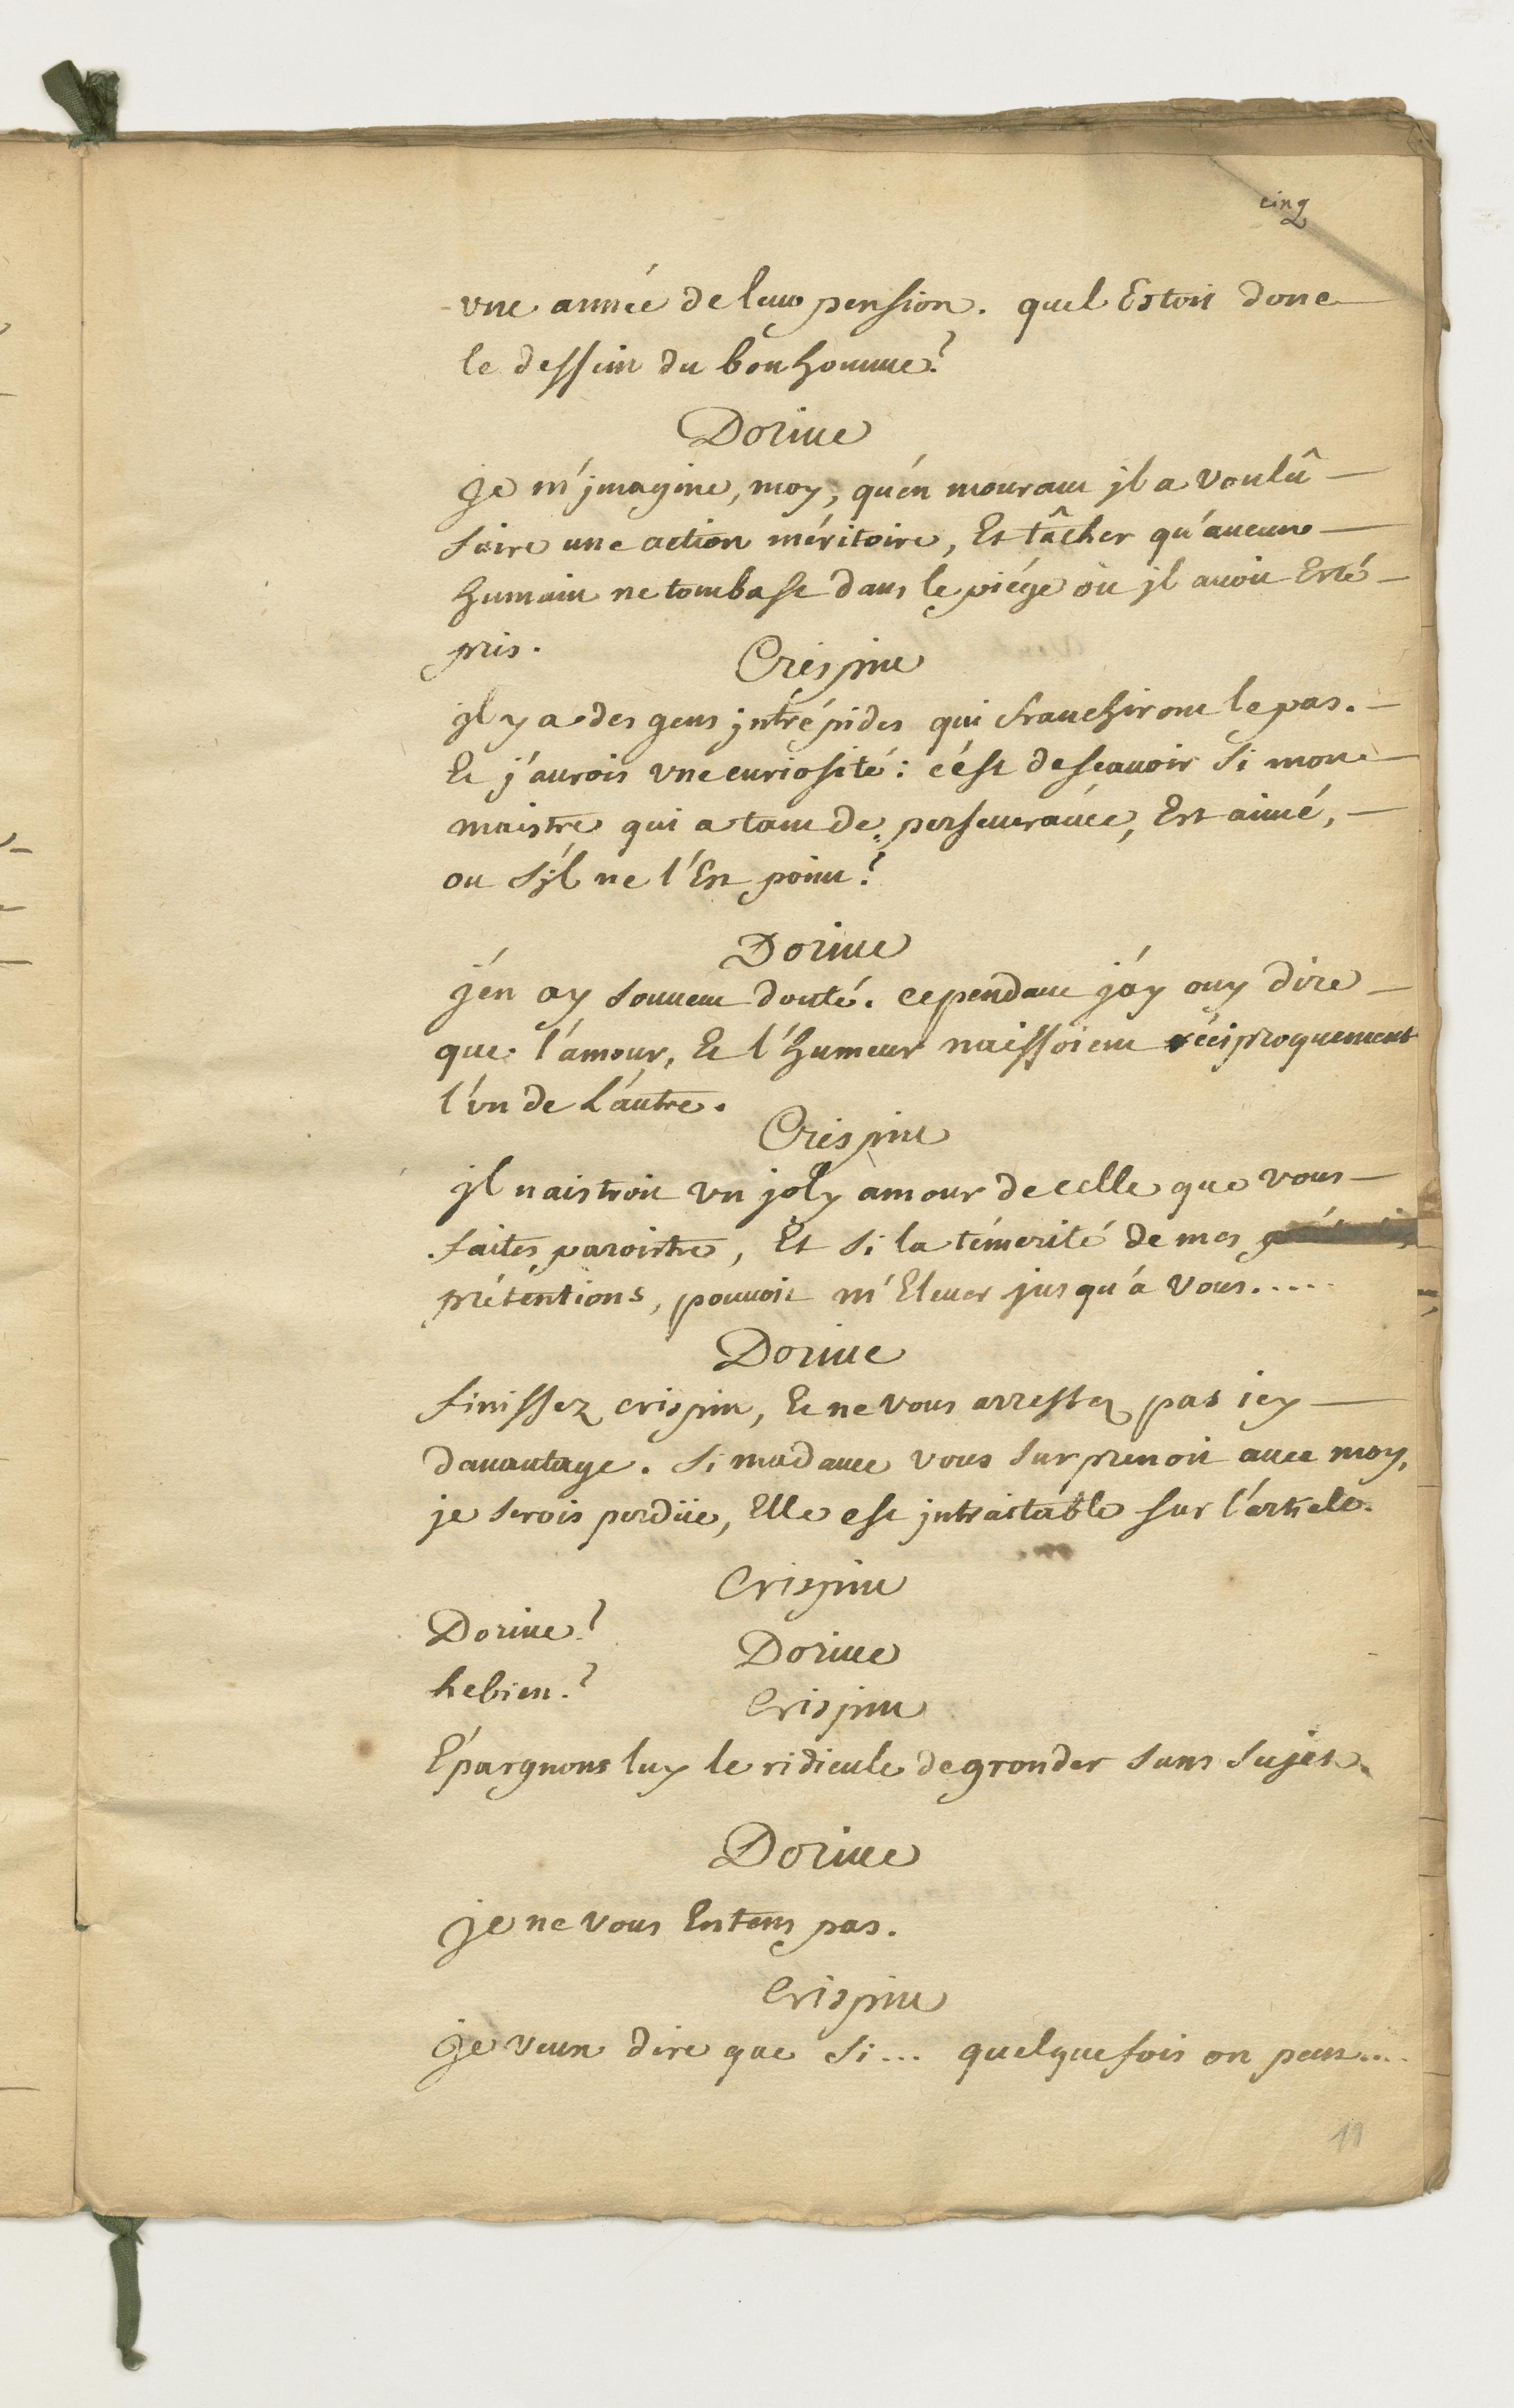 cinq
vne année de leur pension. quel Estoit donc
le dessein du bonhomme?
Dorine
je m'jmagine, moy, qu'én mourant jl a voulû
faire une action méritoire, Et tâcher qu'aucun
humain ne tombast dans le piége où jl auoit Esté
pris.
Crispin
jl y a des gens jntrépides qui franchiront le pas.
Et j'aurois vne curiosité: c'ést de sçauoir si mon
maistre qui a tant de perseuerance, Est aimé,
ou s'jl ne l'Est point?
Dorine
j'én ay souuent douté. cependant j'áy ouy dire
que l'amour, Et l'humeur naissoient réciproquement
l'ún de l'áutre.
Crispin
jl naistroit vn joly amour de celle que vous
faites paroistre, Et si la témerité de mes
prétentions, pouuoit m'Eleuer jusqu'á vous.....
Dorine
finissez crispin, Et ne vous arrestez pas icy
dauantage. si madame vous surprenoit auec moy,
je serois perdüe, Elle est jntraitable sur l'article.
Crispin
Dorine?
Dorine
hebien.?
Crispin
Épargnons luy le ridicule de gronder sans sujet.
Dorine
je ne vous Entens pas.
Crispin
je veux dire que si... quelque fois on peut....
11